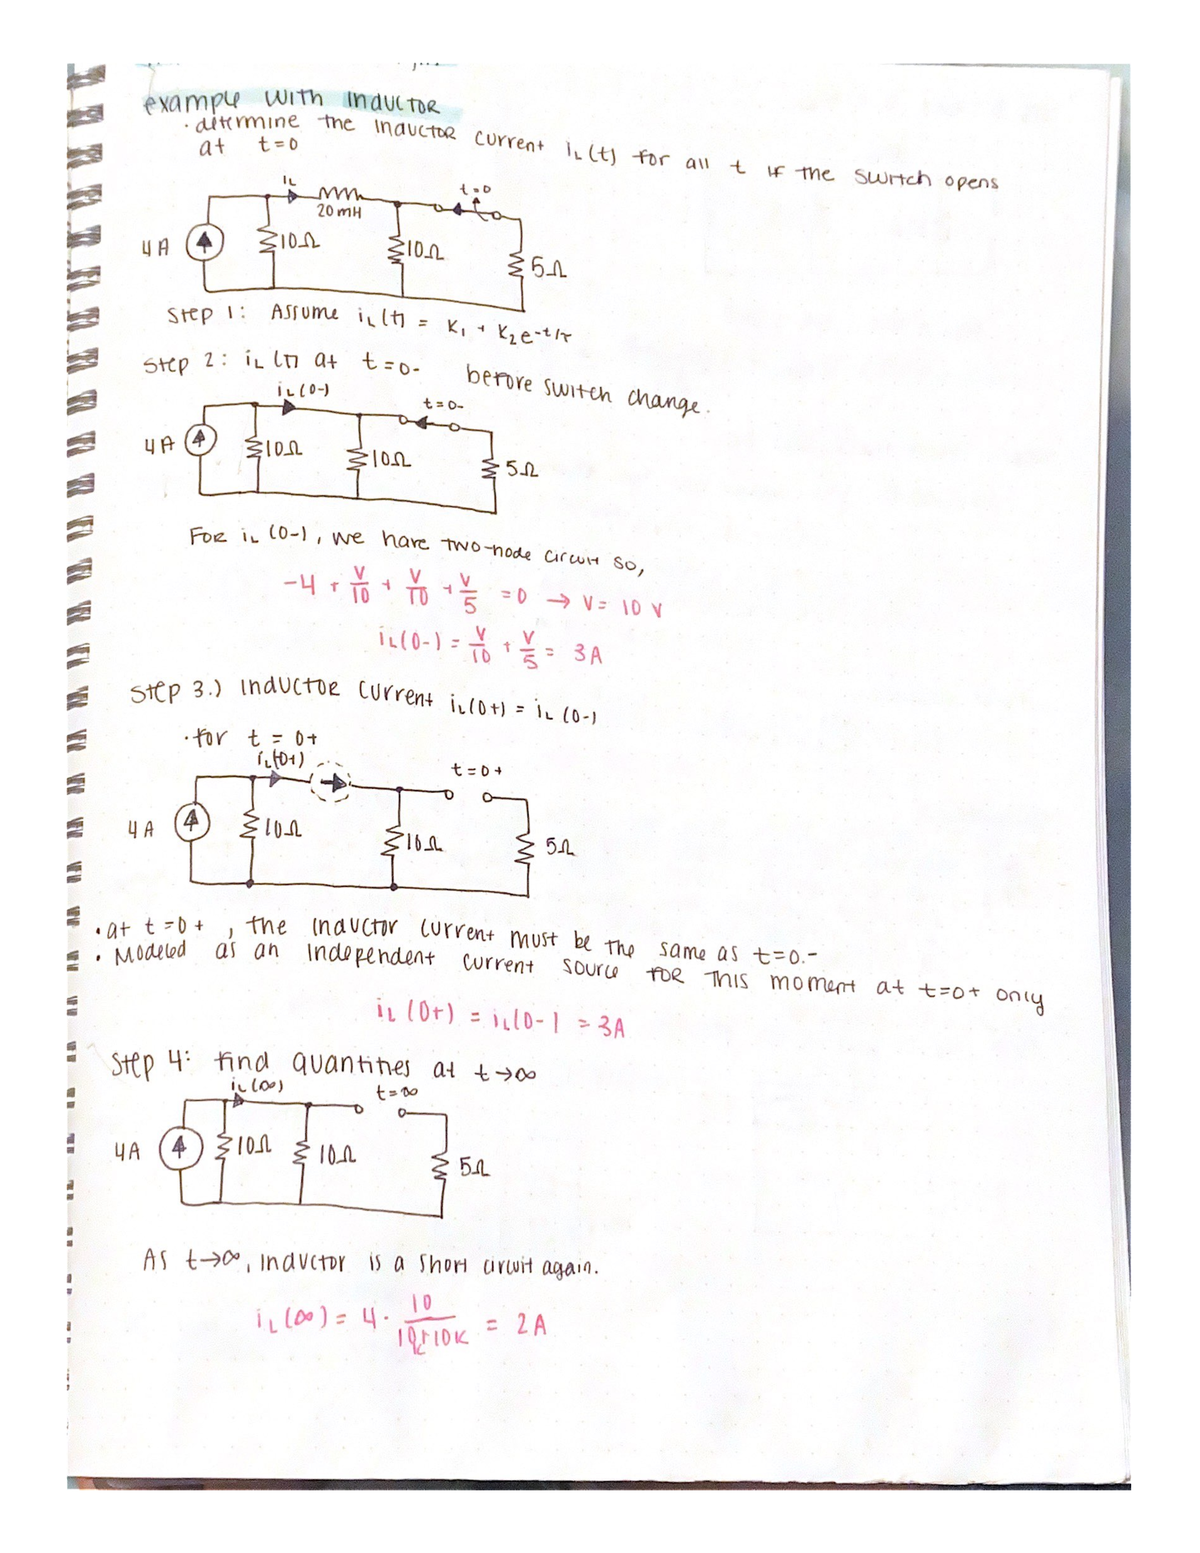 example with inductor
· determine the inductor current iL(t) for all t if the switch opens
at t=0
iL
t=0
20 mH
4 A
10Ω
10Ω
5Ω
Step 1: Assume iL(t) = K₁ + K₂e^-t/τ
Step 2: iL(t) at t=0- before switch change.
iL(0-)
t=0-
4A
10Ω
10Ω
5Ω
For iL (0-), we have two-node circuit so,
-4 + V/10 + V/10 + V/5 = 0 → V= 10 V
iL(0-) = V/10 + V/5 = 3A
Step 3.) Inductor current iL(0+) = iL (0-)
· for t = 0+
iL(0+)
t=0+
4 A
10Ω
10Ω
5Ω
· at t=0+, the inductor current must be the same as t=0.-
· Modeled as an independent current source for this moment at t=0+ only
iL (0+) = iL(0-) = 3A
Step 4: find quantities at t→∞
iL(∞)
t=∞
4A
10Ω
10Ω
5Ω
As t→∞, inductor is a short circuit again.
iL(∞) = 4 · 10/10k+10k = 2A